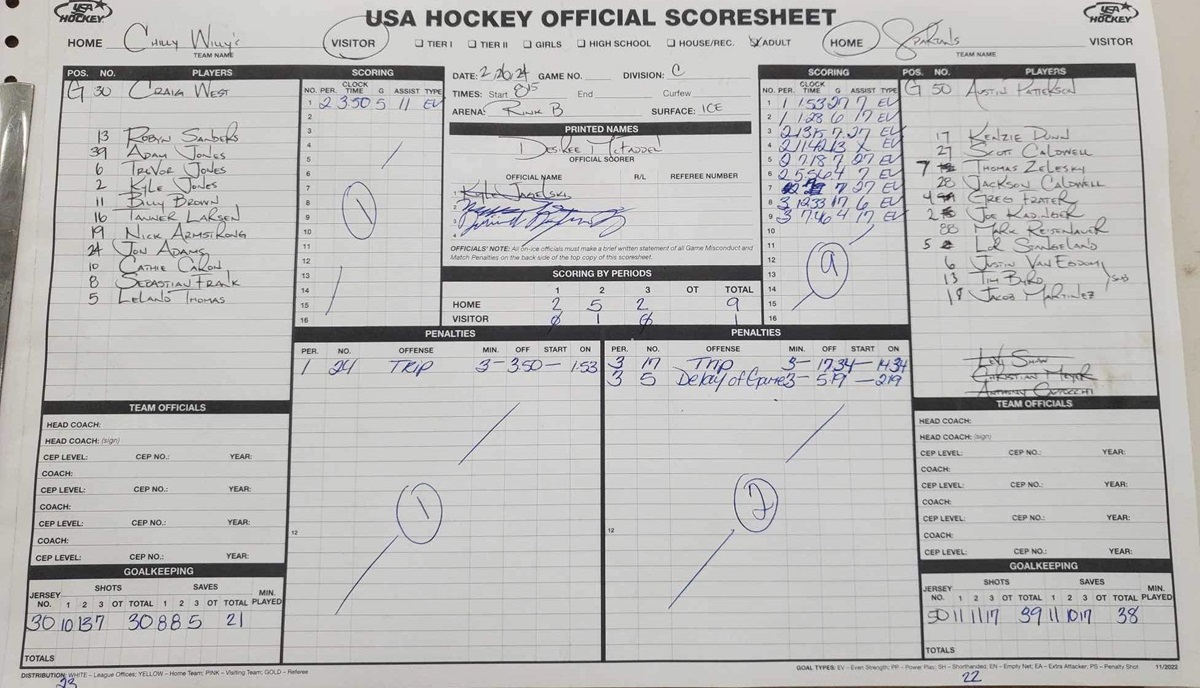 USA HOCKEY OFFICIAL SCORESHEET
USA HOCKEY
USA HOCKEY
HOME Chilly Willy's VISITOR
TEAM NAME
TIER I TIER II GIRLS HIGH SCHOOL HOUSE/REC. ADULT
HOME Spartans VISITOR
TEAM NAME
POS. NO. PLAYERS
G 30 CRAIG WEST
13 ROBYN SANDERS
39 ADAM JONES
6 TREVOR JONES
2 KYLE JONES
11 BILLY BROWN
16 TANNER LARSEN
19 NICK ARMSTRONG
24 JON ADAMS
10 CATHIE CARON
8 SEBASTIAN FRANK
5 LELAND THOMAS
SCORING
NO. PER. CLOCK TIME G ASSIST TYPE
1 2 350 5 11 EV
2
3
4
5
6
7
8
9
10
11
12
13
14
15
16
1
DATE: 2/26/24 GAME NO. DIVISION: C
TIMES: Start 815 End Curfew
ARENA: RINK B SURFACE: ICE
PRINTED NAMES
OFFICIAL SCORER
OFFICIAL NAME R/L REFEREE NUMBER
1
2
3
4
OFFICIALS' NOTE: All on-ice officials must make a brief written statement of all Game Misconduct and
Match Penalties on the back side of the top copy of this scoresheet.
SCORING BY PERIODS
1 2 3 OT TOTAL
HOME 2 5 2 9
VISITOR 0 1 0 1
SCORING
NO. PER. CLOCK TIME G ASSIST TYPE
1 1 153 27 7 EV
2 1 128 6 17 EV
3 2 1315 7 27 EV
4 2 1142 13 X EV
5 2 718 7 27 EV
6 2 556 4 7 EV
7 7 27 EV
8 3 1233 17 6 EV
9 3 746 4 17 EV
10
11
12
13
14
15
16
9
POS. NO. PLAYERS
G 50 AUSTIN PATTERSON
17 KENZIE DUNN
27 SCOTT CALDWELL
7 THOMAS ZELESKY
28 JACKSON CALDWELL
4 GREG FRATER
2 JOE KADINGER
88 MARK REISENAUER
5 STANGELAND
6 JUSTIN VAN
13 TIM BYRD
18 JACOB MARTINEZ
LEVI SHAW
CHRISTIAN MEYER
ANTHONY
PENALTIES
PER. NO. OFFENSE MIN. OFF START ON
1 24 TRIP 3 - 350 - 153
12
1
PENALTIES
PER. NO. OFFENSE MIN. OFF START ON
3 17 Trip 3 - 1734 - 1434
3 5 Delay of Game 3 - 519 - 219
12
2
TEAM OFFICIALS
HEAD COACH:
HEAD COACH: (sign)
CEP LEVEL: CEP NO.: YEAR:
COACH:
CEP LEVEL: CEP NO.: YEAR:
COACH:
CEP LEVEL: CEP NO.: YEAR:
COACH:
CEP LEVEL: CEP NO.: YEAR:
GOALKEEPING
SHOTS SAVES
JERSEY NO. 1 2 3 OT TOTAL 1 2 3 OT TOTAL MIN. PLAYED
30 10 13 7 30 8 8 5 21
TOTALS
TEAM OFFICIALS
HEAD COACH:
HEAD COACH: (sign)
CEP LEVEL: CEP NO.: YEAR:
COACH:
CEP LEVEL: CEP NO.: YEAR:
COACH:
CEP LEVEL: CEP NO.: YEAR:
COACH:
CEP LEVEL: CEP NO.: YEAR:
GOALKEEPING
SHOTS SAVES
JERSEY NO. 1 2 3 OT TOTAL 1 2 3 OT TOTAL MIN. PLAYED
50 11 11 17 39 11 10 17 38
TOTALS
DISTRIBUTION: WHITE – League Offices; YELLOW – Home Team; PINK – Visiting Team; GOLD – Referee
GOAL TYPES: EV – Even Strength; PP – Power Play; SH – Shorthanded; EN – Empty Net; EA – Extra Attacker; PS – Penalty Shot 11/2022
23
22